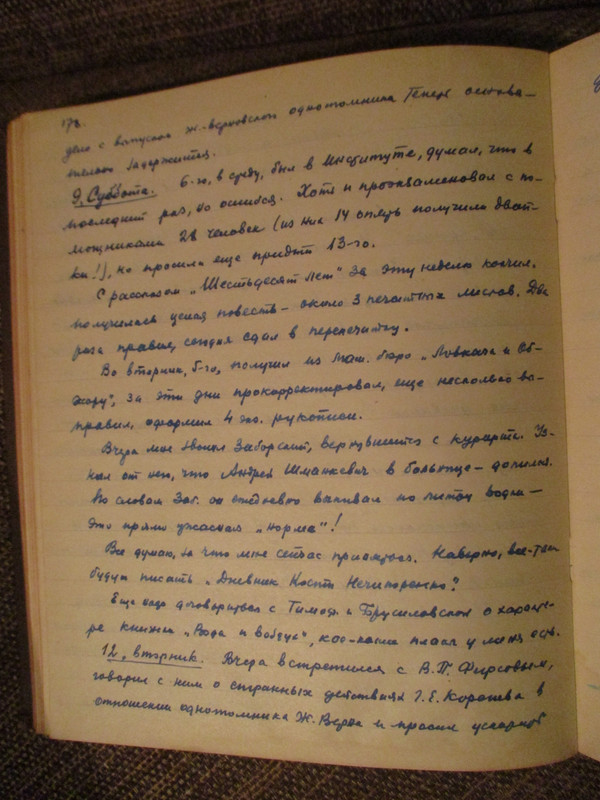 178.
дело с выпуском Ж.-верновского однотомника теперь основа-
тельно задержится.
9, Суббота. 6-го, в среду, был в Институте, думал, что в
последний раз, но ошибся. Хотя и проэкзаменовал с по-
мощниками 28 человек (из них 14 опять получили двой-
ки!), но просили еще придти 13-го.
С рассказом „Шестьдесят лет" за эту неделю кончил.
Получилась целая повесть – около 3 печатных листов. Два
раза правил, сегодня сдал в перепечатку.
Во вторник, 5-го, получил из маш. бюро „Ловкача и
за эти дни прокорректировал, еще несколько вы-
правил, оформил 4 экз. рукописи.
Вчера мне звонил Заборский, вернувшийся с курорта. Уз-
нал от него, что Андрей Шманкевич в больнице – допился.
По словам Заб. он ежедневно выпивал по литру водки –
это прямо ужасная „норма"!
Все думаю, за что мне сейчас приняться. Наверно, все-таки
буду писать „Дневник Кости Нечипоренко".
Еще надо договориться с Тимоф. и Брусиловской о характе-
ре книжки „Вода и воздух", кое-какие планы у меня есть.
12, вторник. Вчера встретился с В.П. Фирсовым,
говорил с ним о странных действиях Г.Е. в
отношении однотомника Ж. Верна и просил ускорить